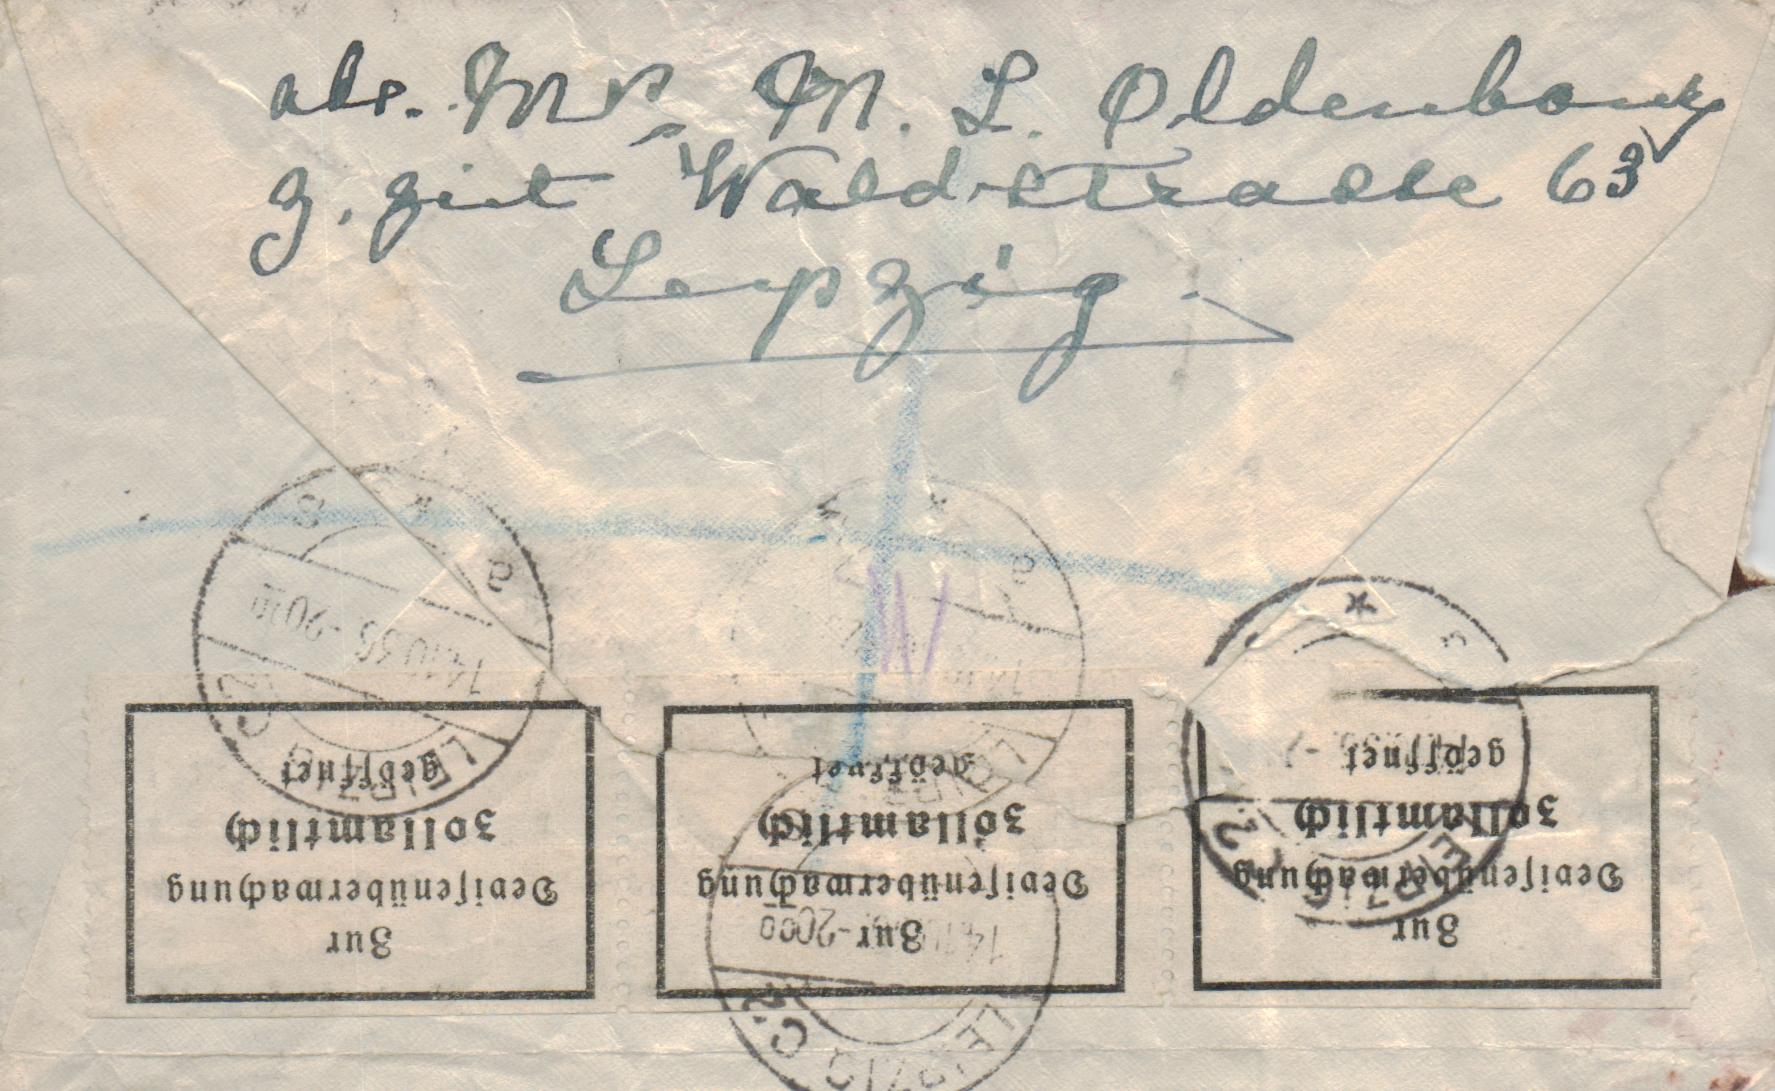 abs. Mrs M. L. Oldenbourg
z. Zeit Waldstrasse 63
Leipzig.
Zur
Devisenüberwachung
zollamtlich
geöffnet
Zur
Devisenüberwachung
zollamtlich
geöffnet
Zur
Devisenüberwachung
zollamtlich
geöffnet
LEIPZIG C2
14.10.35-20
LEIPZIG
LEIPZIG C2
LEIPZIG C2